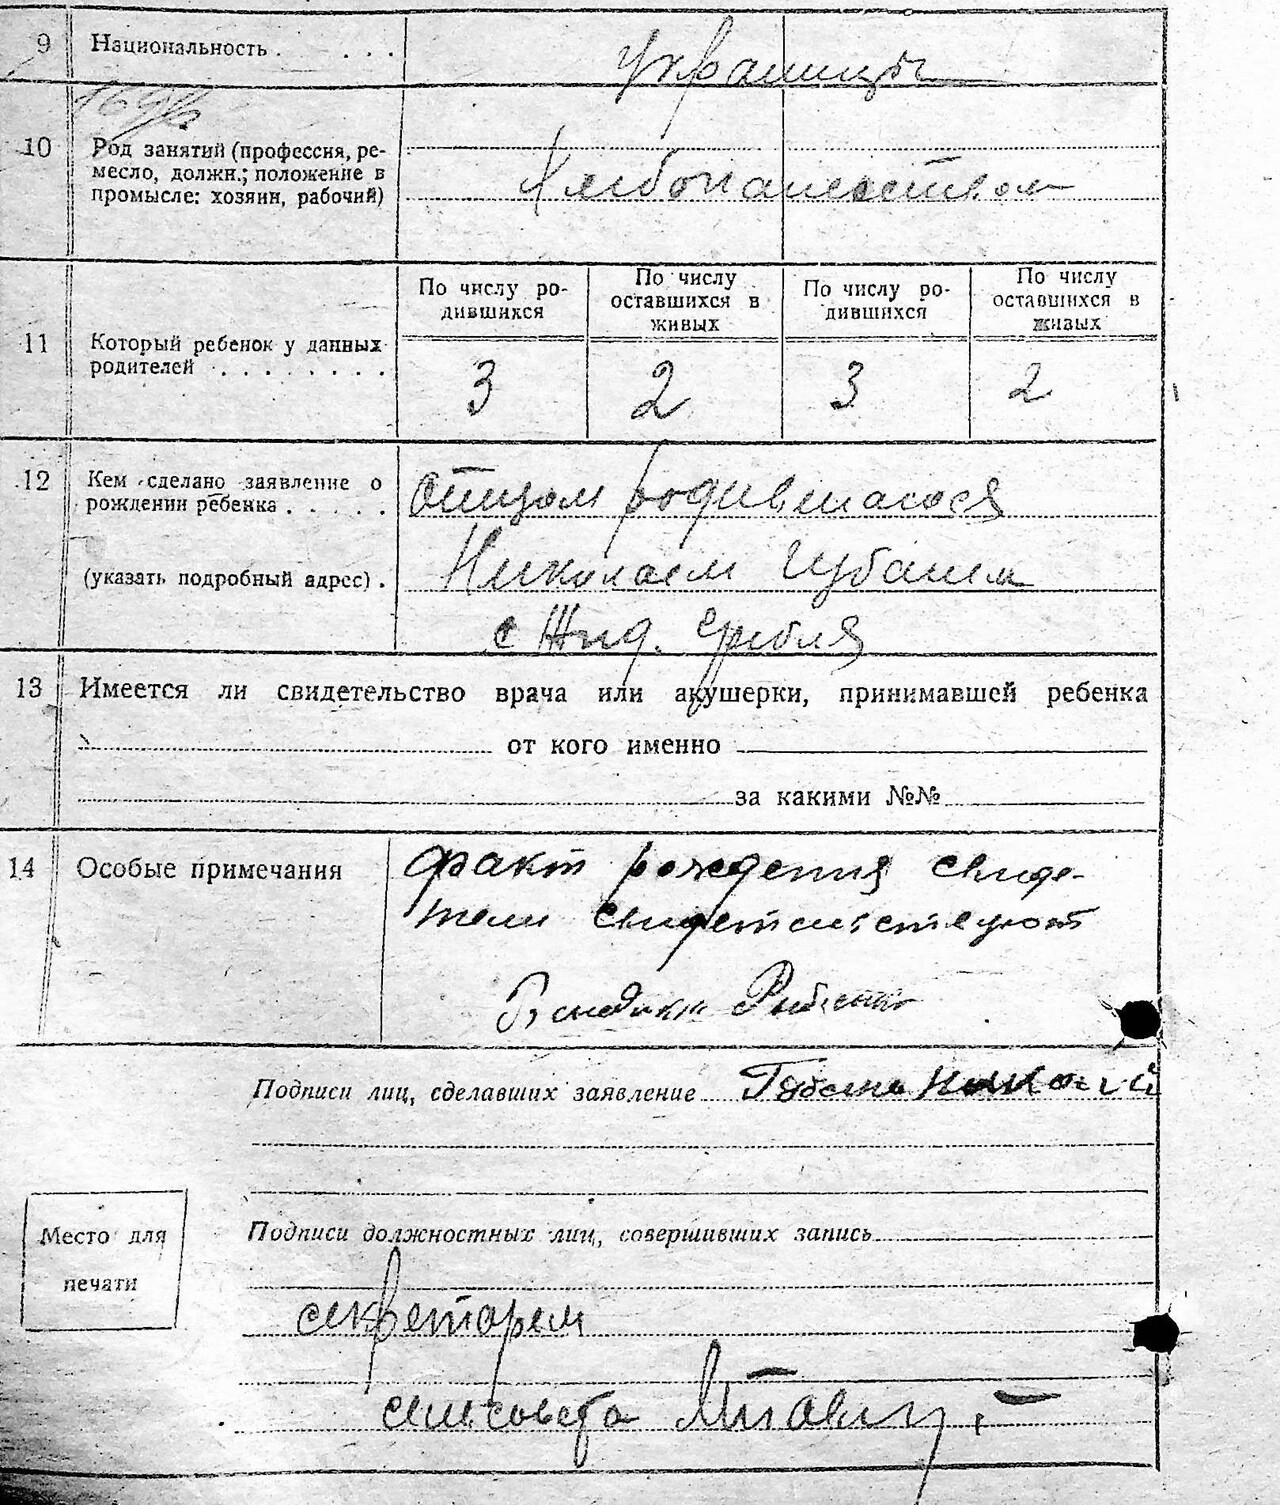 9 Национальность . . . .
украинцы
10 Род занятий (профессия, ре-
месло, должн.; положение в
промысле: хозяин, рабочий)
Хлебопашеством
По числу ро-
дившихся
По числу
оставшихся в
живых
По числу ро-
дившихся
По числу
оставшихся в
живых
11 Который ребенок у данных
родителей . . . . . . . .
3 2 3 2
12 Кем сделано заявление о
рождении ребенка . . . . .
(указать подробный адрес) .
отцом родившагося
Николаем Губанем
с Жид. Гребля
13 Имеется ли свидетельство врача или акушерки, принимавшей ребенка
от кого именно
за какими №№
14 Особые примечания
факт рождения свиде-
тели свидетельствуют
Подписи лиц, сделавших заявление Губань Николай
Место для
печати
Подписи должностных лиц, совершивших запись
секретарем
сельсовета